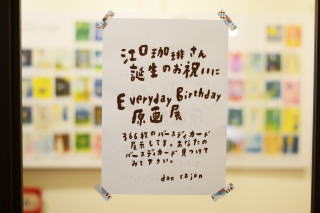 江口珈琲さん
誕生のお祝いに
Everyday Birthday
原画展
366枚のバースデイカード
展示してます。あなたの
バースデイカード見つけて
みて下さい。
don cajon